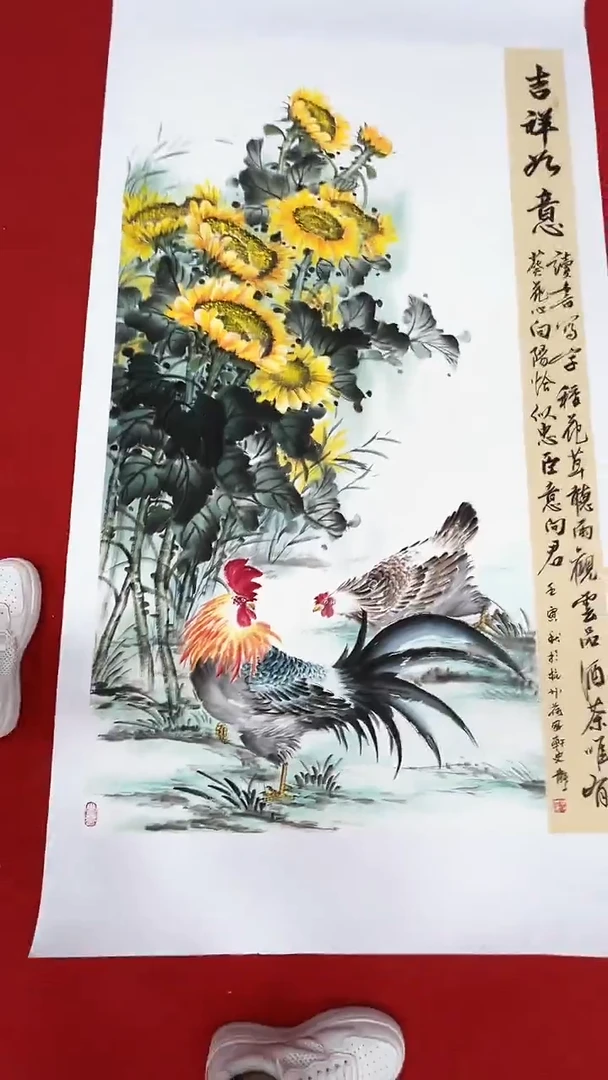 吉祥如意
讀書寫字種花草聽雨觀雲品酒茶唯有
葵花心向陽恰似忠臣意向君
壬寅秋於杭州